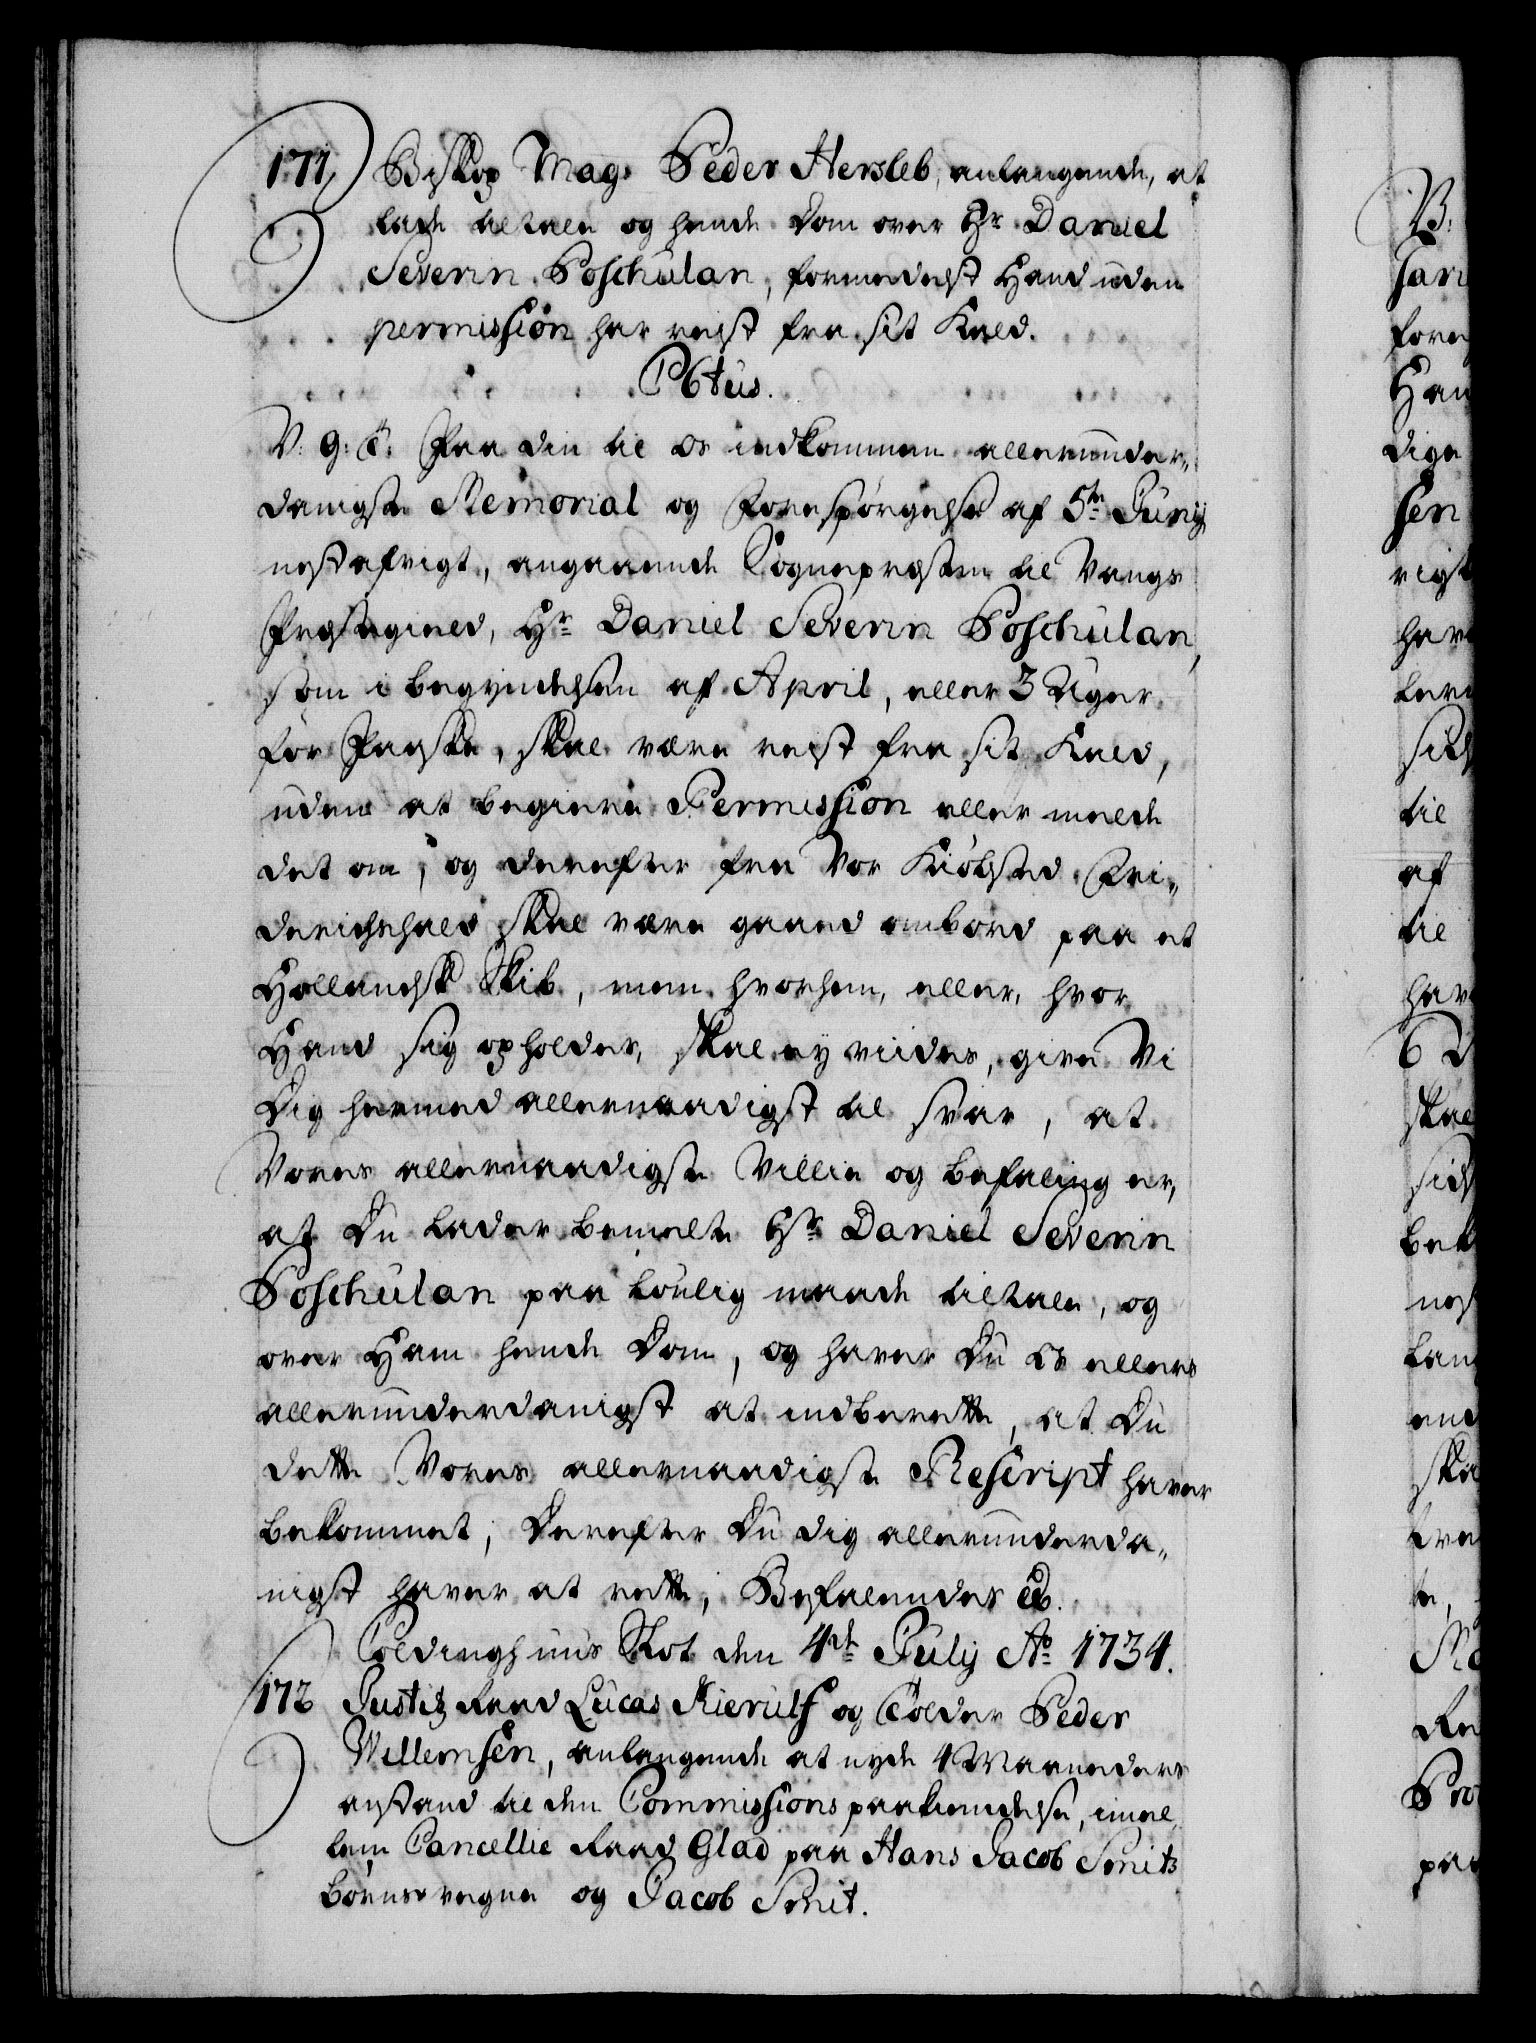 171, Biskop Mag. Peder Hersleb, anlangende, at
lade tiltale og hende Dom over Hr. Daniel
Severin Poschulan, formedelst Hand uden
permission har reist fra sit Kald.
C6tus.
V. G. T. Paa din til os indkommen allerunder-
danigste Memorial og Forespörgelse af 5te Junij
nestafvigt, angaaende Sognepresten til Vangs
Prestegield, Hr. Daniel Severin Poschulan,
som i begyndelsen af April, eller 3 Uger
for Paaske, skal være reist fra sit Kald,
uden at begiere Permission eller melde
det om, og derefter fra Vor Kiöbsted Fri-
derichshald skal være gaaed ombord paa et
Hollandsk Skib, men hvorhen, eller, hvor
Hand sig opholder, skal ey viides, give Vi
Dig hermed allernaadigst til svar, at
Vores allernaadigste Villie og befaling er,
at Du lader bemelte Hr. Daniel Severin
Poschulan paa louglig maade tiltale, og
over Ham hende Dom, og haver Du os ellers
allerunderdanigst at indberette, at Du
dette Vores allernaadigste Rescript haver
bekommet, Derefter Du dig allerunderda-
nigst haver at rette, Befalendes etc.
Coldinghuus Slot den 4de Julij Ao. 1734.
172 Justitz Raad Lucas Kierulf og Tolder Peder
Willemsen, anlangende at nyde 4 Maaneders
anstand til den Commissions paakiendelse, imel-
lem Cancellie Raad Glad paa Hans Jacob Smits
börns vegne og Jacob Smit.
V.
fore
Han
dige
sen
rigt
til
af
til
6
skal
sid
bek
lan
end
ska
paa